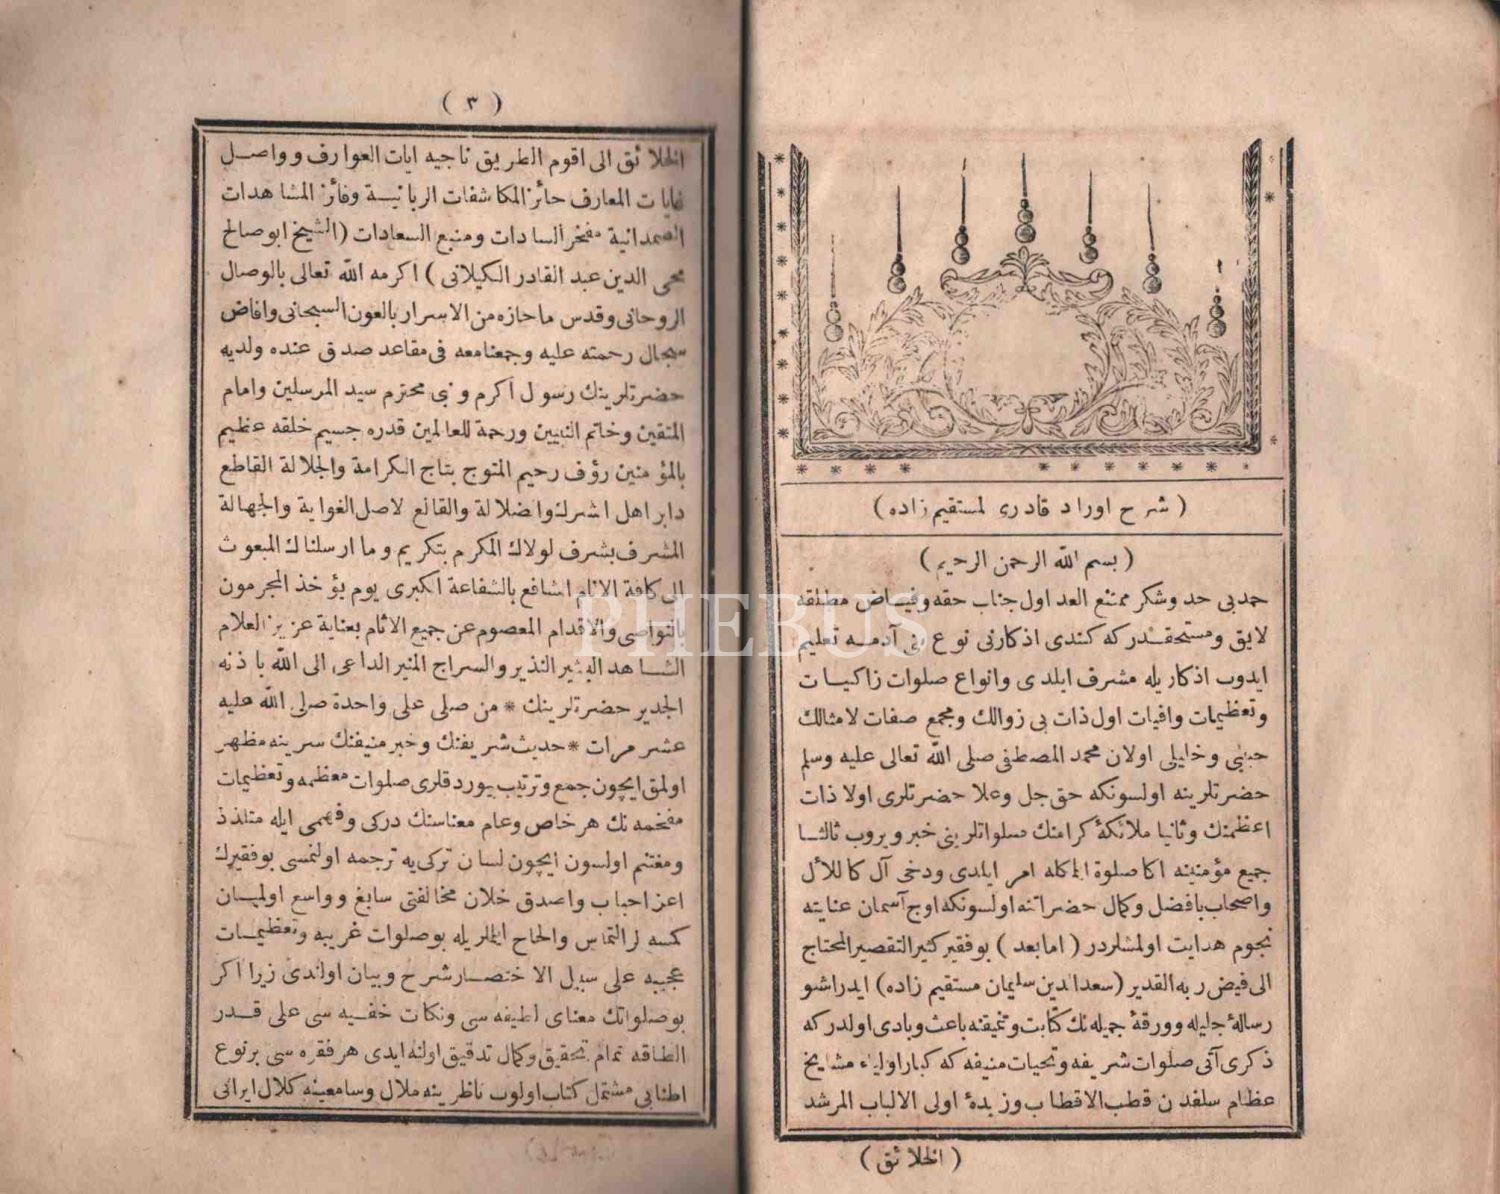 ( شرح اوراد قادرى لمستقيم زاده )
( بسم الله الرحمن الرحيم )
حمد بى حد وشكر ممتنع العد اول جناب حقه وفياض مطلقه
لايق ومستحقدركه كندى اذكارنى نوع بنى آدمه تعليم
ايدوب اذكاريله مشرف ايلدى وانواع صلوات زاكيات
وتعظيمات وافيات اول ذات بى زوالك ومجمع صفات لامثالك
حبيبى وخليلى اولان محمد المصطفى صلى الله تعالى عليه وسلم
حضرتلرينه اولسونكه حق جل وعلا حضرتلرى اولا ذات
اعظمنك وثانيا ملائكۀ كرامنك صلواتلرينى خبر ويروب ثالثا
جميع مؤمنينه اكا صلوة ايله امر ايلدى ودخى آل كاللأل
واصحاب بافضل وكمال حضراتنه اولسونكه اوج آسمان عنايته
نجوم هدايت اولمشلردر ( اما بعد ) بو فقير كثير التقصير المحتاج
الى فيض ربه القدير ( سعد الدين سليمان مستقيم زاده ) ايدر اشبو
رسالۀ جليله وورقۀ جميله نك كتابت وتنميقنه باعث وبادى اولدركه
ذكرى آتى صلوات شريفه وتحيات منيفه كه كبار اولياء مشايخ
عظام سلفدن قطب الاقطاب وزبدۀ اولى الالباب المرشد
( الخلائق )
( ٣ )
الخلائق الى اقوم الطريق ناجيه ايات العوارف وواصل
غايات المعارف حائز المكاشفات الربانية وفائز المشاهدات
الصمدانية مفخر السادات ومنبع السعادات ( الشيخ ابو صالح
محى الدين عبد القادر الكيلانى ) اكرمه الله تعالى بالوصال
الروحانى وقدس ما حازه من الاسرار بالعون السبحانى وافاض
سجال رحمته عليه وجمعنا معه فى مقاعد صدق عنده ولديه
حضرتلرينك رسول اكرم ونبى محترم سيد المرسلين وامام
المتقين وخاتم النبيين ورحمة للعالمين قدره جسيم خلقه عظيم
بالمؤمنين رؤف رحيم المتوج بتاج الكرامة والجلالة القاطع
دابر اهل اشرك واضلالة والقالع لاصل الغواية والجهالة
المشرف بشرف لولاك المكرم بتكريم وما ارسلناك المبعوث
الى كافة الانام اشافع بالشفاعة الكبرى يوم يؤخذ المجرمون
بالنواصى والاقدام المعصوم عن جميع الاثام بعناية عزيز العلام
الشاهد البشير النذير والسراج المنير الداعى الى الله باذنه
الجدير حضرتلرينك * من صلى على واحدة صلى الله عليه
عشر مرات * حديث شريفنك وخبر منيفنك سرينه مظهر
اولمق ايچون جمع وترتيب بيوردقلرى صلوات معظمه وتعظيمات
مفخمه نك هر خاص وعام معناسنك دركى وفهمى ايله متلذذ
ومغتنم اولسون ايچون لسان تركى يه ترجمه اولنمسى بو فقيرك
اعز احباب واصدق خلان مخالفتى سايغ وواسع اولميان
كمسه لر التماس والحاح ايلمريله بو صلوات غريبه وتعظيمات
عجيبه على سبيل الاختصار شرح وبيان اولندى زيرا اكر
بو صلواتك معناى لطيفه سى ونكات خفيه سى على قدر
الطاقه تمام تحقيق وكمال تدقيق اولنه ايدى هر فقره سى بر نوع
اطنابى مشتمل كتاب اولوب ناظرينه ملال وسامعينه كلال ايرانى
PHEBUS